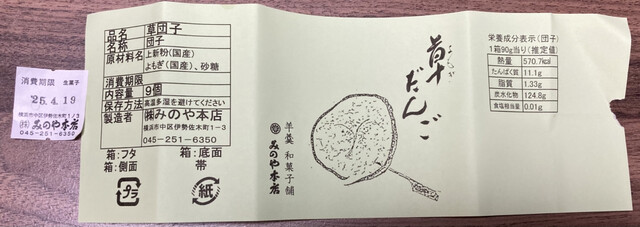 消費期限 生菓子
'25.4.19
横浜市中区伊勢佐木町1/3
㈱みのや本店
045-251-6350
品名 草団子
名称 団子
原材料名 上新粉(国産)
よもぎ(国産)、砂糖
消費期限
内容量 9個
保存方法 高温多湿を避けてください
製造者 ㈱みのや本店
横浜市中区伊勢佐木町1−3
045-251-6350
箱:フタ
箱:側面
プラ
箱:底面
帯
紙
草だんご
羊羹 和菓子舗
みのや本店
栄養成分表示(団子)
1箱90g当り(推定値)
熱量 570.7kcal
たんぱく質 11.1g
脂質 1.33g
炭水化物 124.8g
食塩相当量 0.01g